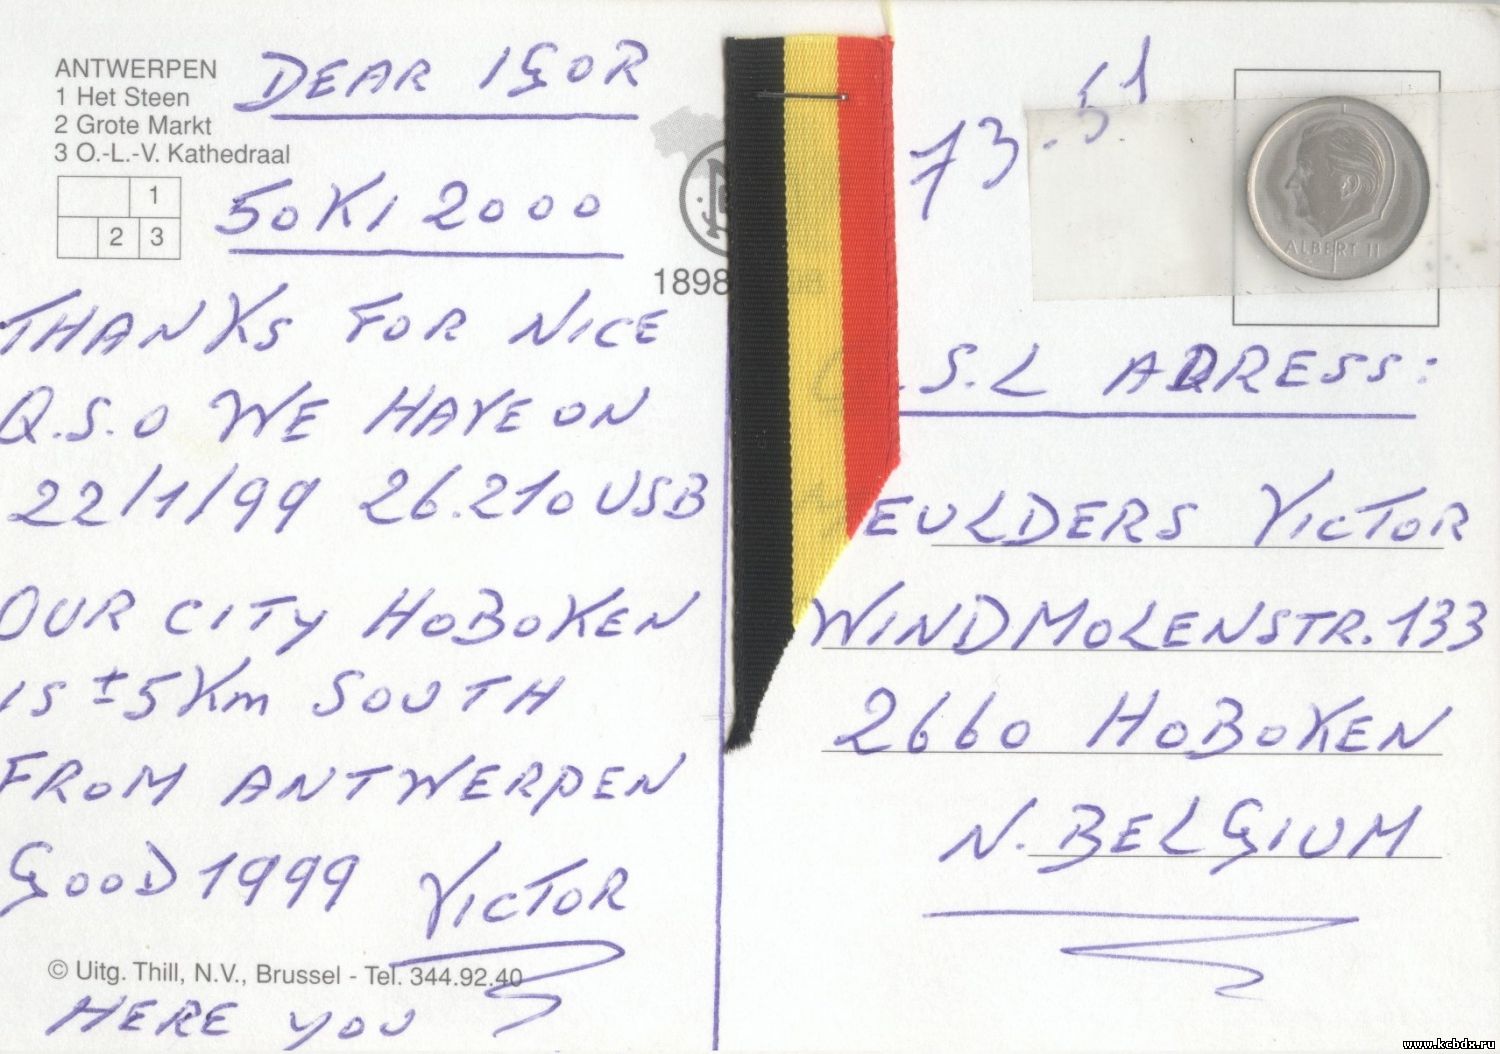 ANTWERPEN
1 Het Steen
2 Grote Markt
3 O.-L.-V. Kathedraal
1
2 3
DEAR IGOR
50KI 2000
THANKS FOR NICE
Q.S.O WE HAVE ON
22/1/99 26.210 USB
OUR CITY HOBOKEN
IS ±5 Km SOUTH
FROM ANTWERPEN
GOOD 1999 VICTOR
© Uitg. Thill, N.V., Brussel - Tel. 344.92.40
HERE YOU
1898
73.51
ALBERT II
.S.L ADRESS:
EULDERS VICTOR
WINDMOLENSTR. 133
2660 HOBOKEN
N. BELGIUM
www.kcbdx.ru